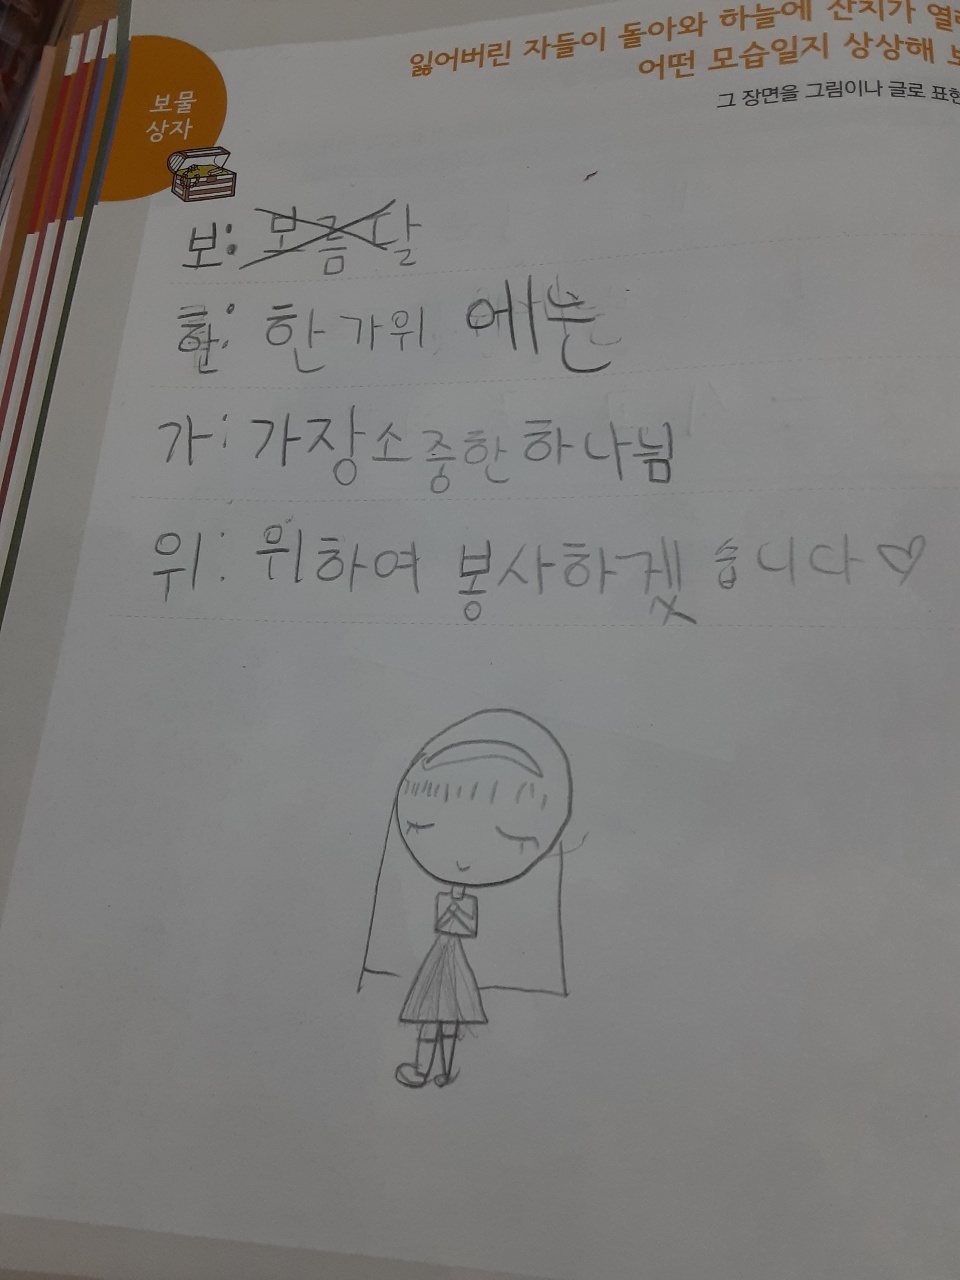 잃어버린 자들이 돌아와 하늘에 잔치가
어떤 모습일지 상상해
그 장면을 그림이나 글로 표현
보물
상자
보: 보름달
한: 한가위 에는
가: 가장소중한하나님
위: 위하여 봉사하겠습니다♡